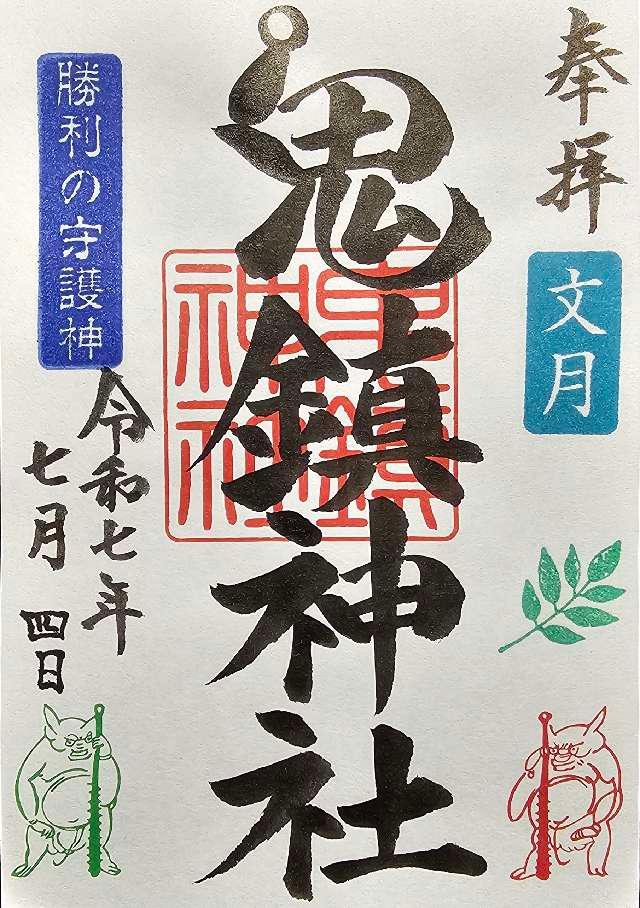 奉拝
文月
鬼鎮神社
鬼鎮神社
勝利の守護神
令和七年
七月四日